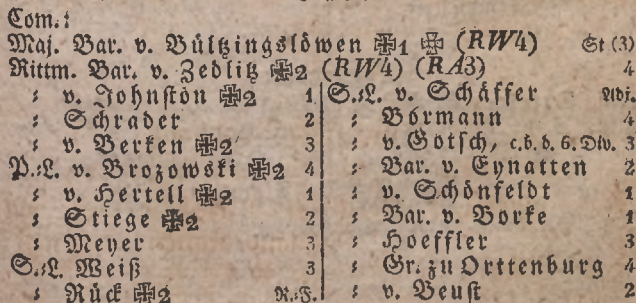 Com.:
Maj. Bar. v. Bültzingslöwen ✠1 ✠ (RW4) St (3)
Rittm. Bar. v. Zedlitz ✠2 (RW4) (RA3) 4
: v. Johnston ✠2 1
: Schrader 2
: v. Berken ✠2 3
P.:L. v. Brozowski ✠2 4
: v. Hertell ✠2 1
: Stiege ✠2 2
: Meyer 3
S.:L. Weiß 3
: Rück ✠2 R.:F.
S.:L. v. Schäffer Adj.
: Bormann 4
: v. Götsch, c. b. d. 6. Div. 3
: Bar. v. Eynatten 2
: v. Schönfeldt 1
: Bar. v. Borke 1
: Hoeffler 3
: Gr. zu Orttenburg 4
: v. Beust 2